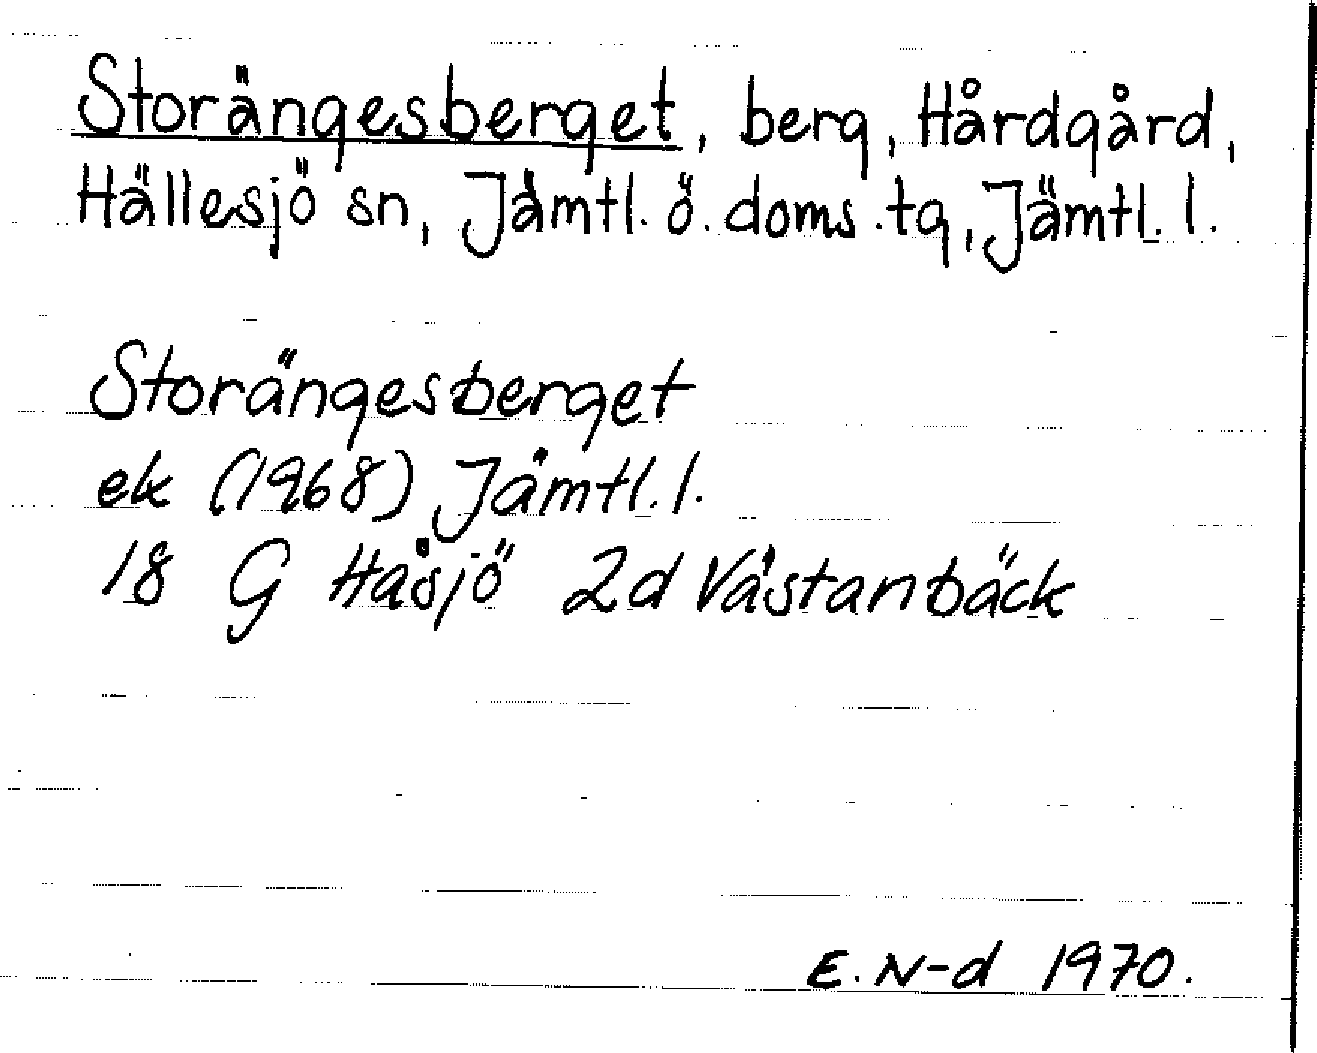 Storängesberget, berg, Hårdgård,
Hällesjö sn, Jämtl. ö. doms. tg, Jämtl. l.
Storängesberget
ek (1968) Jämtl. l.
18 G Håsjö 2d Västanbäck
E. N-d 1970.